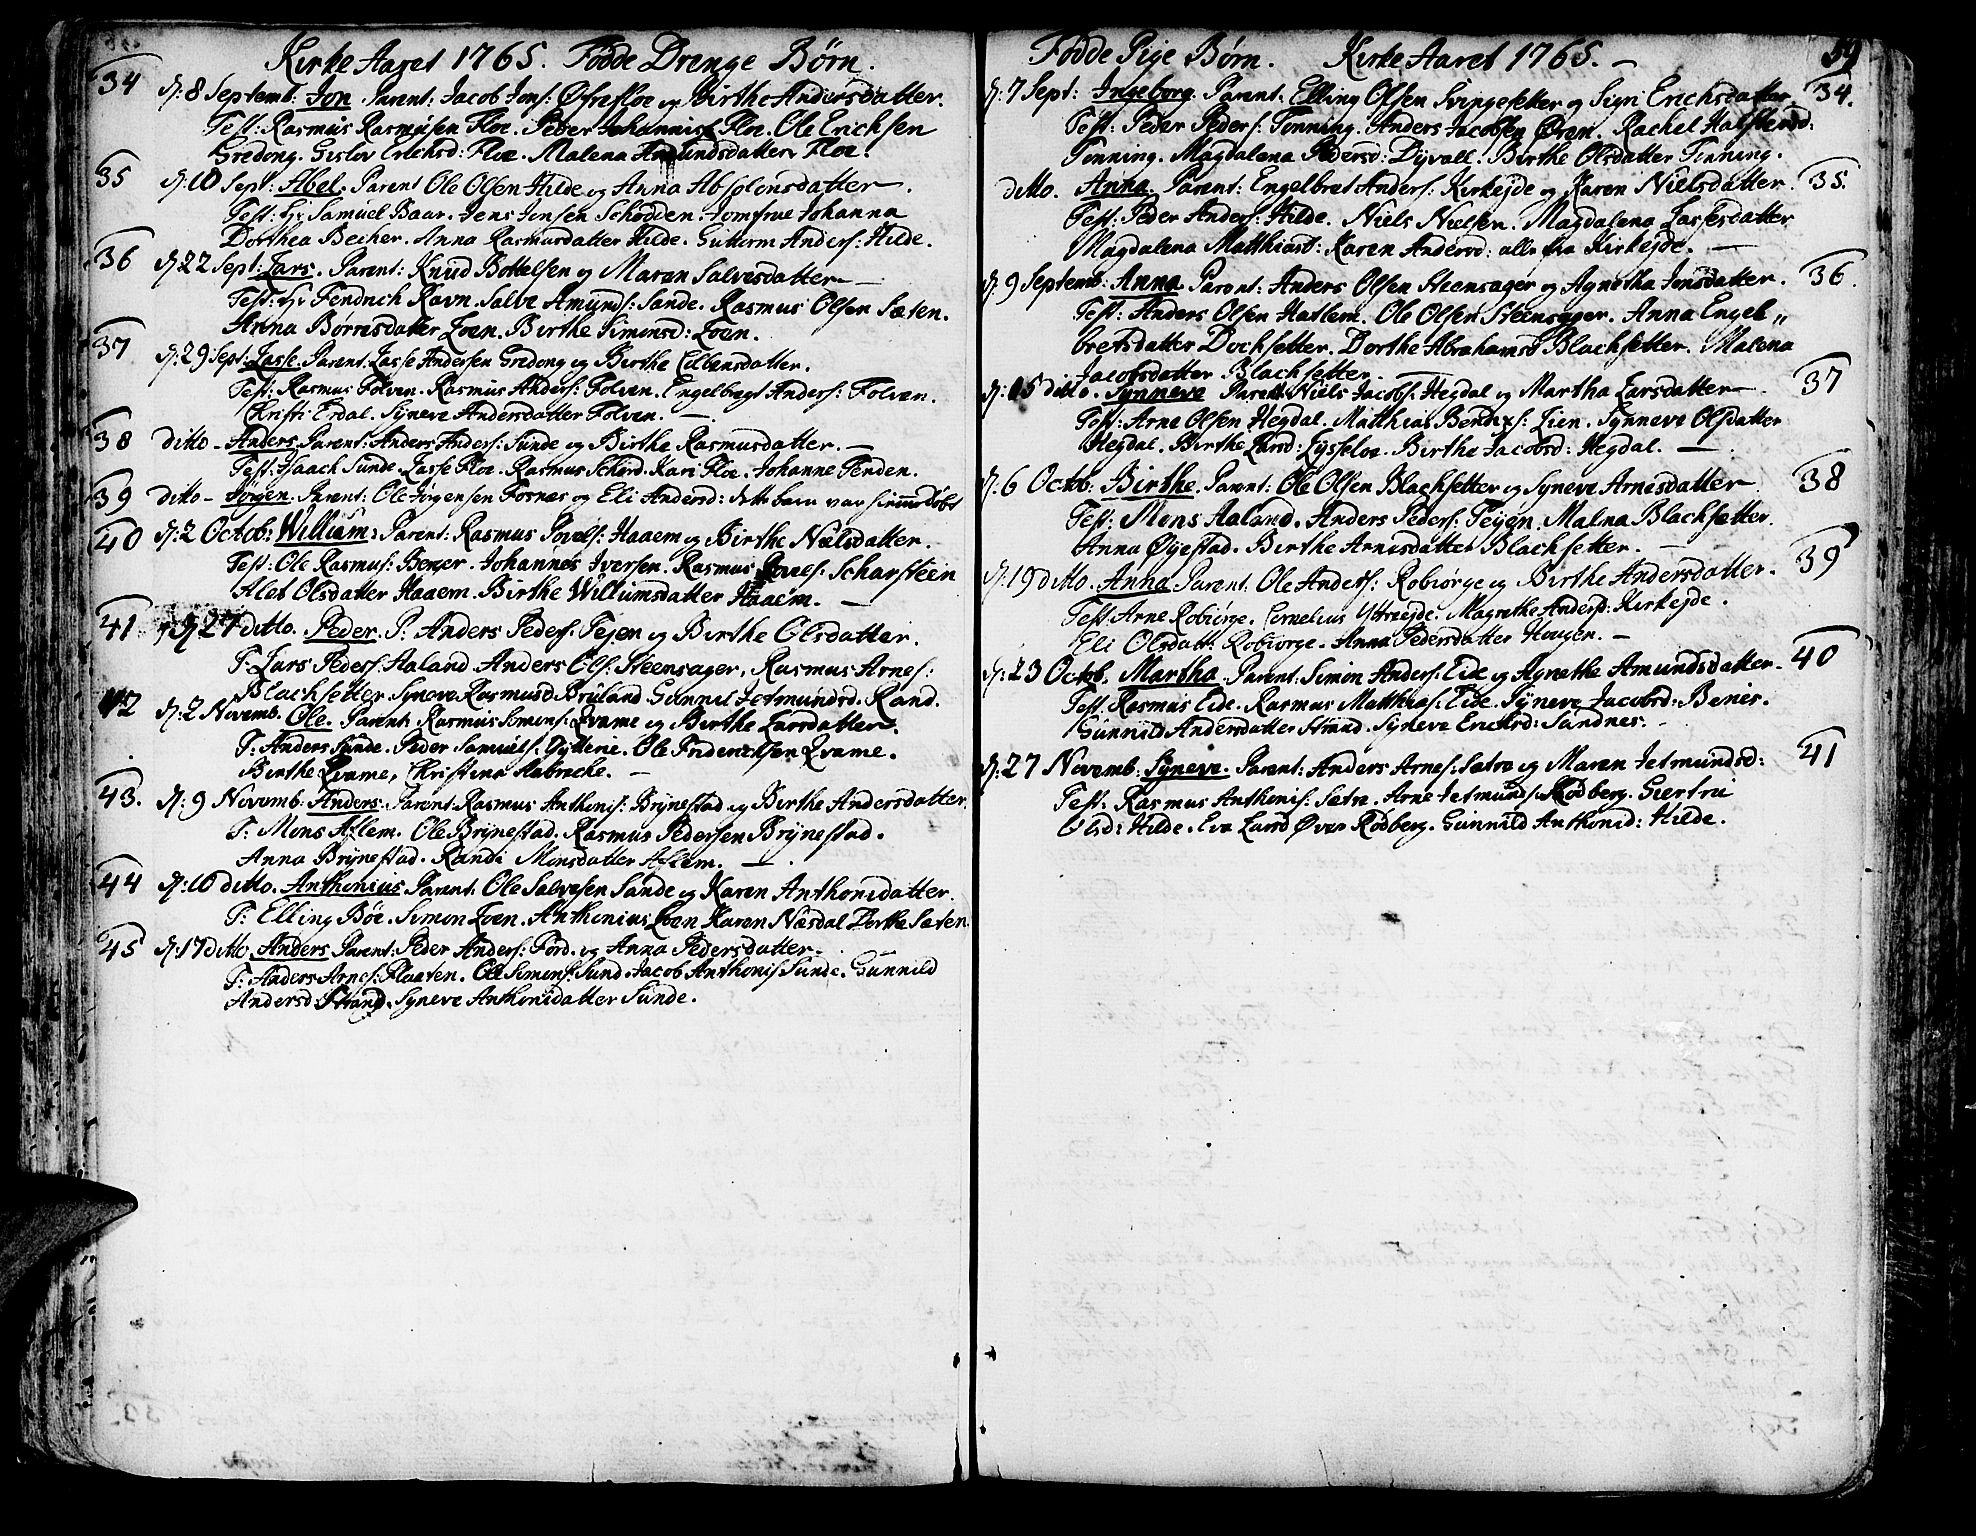 Kirke Aaret 1765. Fødde Drenge Børn.
34 d: 8 Septemb: Jon. Parent: Jacob Jons: Øfrefloe og Birthe Andersdatter.
Test: Rasmus Rasmusen Floe. Peder Johannis: Floe. Ole Erichsen
Gredong. Gislov Erichsd: Floe. Malena Amundsdatter Floe.
35 d: 10 Sept: Abel. Parent Ole Olsen Hilde og Anna Absolonsdatter.
Test: Hr Samuel Baar. Jens Jensen Schodden. Jomfrue Johanna
Dorthea Becher. Anna Rasmusdatter Hilde. Guttorm Anders: Hilde.
36 d: 22 Sept: Lars. Parent: Knud Bottelsen og Maren Salvesdatter —
Test: Hr Fendrich Ravn. Salve Amunds: Sande. Rasmus Olsen Sæten.
Anna Børnsdatter Loen. Birthe Simonsd: Loen.
37 d: 29 Sept: Lasse. Parent: Lasse Andersen Gredong og Birthe Ellensdatter.
Test: Rasmus Folven. Rasmus Anders: Folven. Engelbregt Anders: Folven.
Christi Erdal. Syneve Andersdatter Folven. —
38 ditto - Anders. Parent: Anders Anders: Sunde og Birthe Rasmusdatter. —
Test: Isaach Sunde. Lasse Floe. Rasmus Schord. Kari Floe. Johanne Tenden.
39 ditto - Jørgen. Parent: Ole Jørgensen Fosnæs og Eli Andersd: dette barn var hiemmedøbt
40 d: 2 Octob: William: Parent: Rasmus Povels: Haaem og Birthe Nielsdatter.
Test: Ole Rasmus: Berger. Johannes Iversen. Rasmus Povels: Scharsteen
Alet Olsdatter Haaem. Birthe Williumsdatter Haaem. —
41 d 27 ditto. Peder. P: Anders Peders: Tejen og Birthe Olsdatter.
T: Lars Peders: Aaland. Anders Ols: Steensager. Rasmus Arnes:
Blachsetter. Syneve Rasmusd Bruland Gunnil Jetmundsd. Rand.
42 d: 2 Novemb. Ole. Parent: Rasmus Simons: Qvame og Birthe Larsdatter.
T: Anders Sunde. Peder Samuels: Gytterie. Ole Friderichsen Qvame.
Birthe Qvame, Christina Aabreche. —
43. d: 9 Novemb: Anders. Parent: Rasmus Anthonis: Brynestad og Birthe Andersdatter.
T: Mons Aflem. Ole Brynestad. Rasmus Pedersen Brynestad.
Anna Brynestad. Randi Monsdatter Aflem. —
44 d: 10 ditto. Anthonius Parent: Ole Salvesen Sande og Karen Anthonidatter.
T: Elling Bøe. Simon Loen. Anthonius Loen Karen Næsdal Dorthe Sæten
45 d: 17 ditto Anders Parent: Peder Anders: Førd. og Anna Pedersdatter.
T: Anders Arnes: Flaaten. Ole Simons: Sund. Jacob Anthonis Sunde. Gunnild
Andersd Strand. Syneve Anthonidatter Sunde.
Fødde Pige Børn. Kirke Aaret 1765. — 59
d: 7 Sept: Ingeborg. Parent: Elling Olsen Svingesetter og Sigri Erichsdatter 34.
Test: Peder Peders: Tenning. Anders Jacobsen Øren. Rachel Halstensd:
Tenning. Magdalena Pedersd: Dyvall. Birthe Olsdatter Tenning.
ditto. Anna. Parent: Engelbret Anders: Kirkejde og Karen Nielsdatter. 35.
Test: Peder Anders: Hilde. Niels Nielsen. Magdalena Lassesdatter
Magdalena Matthiasd: Karen Andersd: alle fra Kirkejde. —
d: 9 Septemb: Anna Parent: Anders Olsen Steensager og Agnetha Jonsdatter. 36.
Test: Anders Olsen Hatlem. Ole Olsen Steensager. Anna Engel„
bretsdatter Dochsetter. Dorthe Abrahamsd Blachsetter. Malena
Jacobsdatter Blachsetter.
d: 15 ditto. Synneve Parent: Niels Jacobs: Hegdal og Martha Larsdatter — 37
Test: Arne Olsen Hegdal. Matthias Bendixs: Lien. Synneve Olsdatter
Hegdal. Birthe Larsd: Lysseloe. Birthe Jacobsd: Hegdal. —
d: 6 Octob: Birthe. Parent: Ole Olsen Blachsetter og Syneve Arnesdatter 38
Test: Mons Aaland. Anders Peders: Tejen. Malna Blachsetter.
Anna Øyestad. Birthe Arnesdatter Blachsetter. —
d: 19 ditto. Anna Parent. Ole Anders: Robiørge og Birthe Andersdatter. 39
Test: Arne Robiørge. Cornelius Yttreejde. Magrethe Andersd: Kirkejde.
Eli Olsdatt: Robiørge. Anna Pedersdatter Hougen. —
d: 23 Octob. Martha. Parent: Simon Anders: Eide og Agnethe Amundsdatter. 40
Test: Rasmus Eide. Rasmus Matthias: Eide. Syneve Jacobsd: Benes.
Gunnild Andersdatter Strand. Syneve Erichsd: Sandnes.
d: 27 Novemb: Syneve. Parent: Anders Arnes: Sætre og Maren Jetmundsd: 41
Test: Rasmus Anthonis: Sætre. Arne Jetmunds: Rodberg. Giertru
Olsd: Hilde. Eva Larsd Øvre Rodberg. Gunnild Anthonid: Hilde.